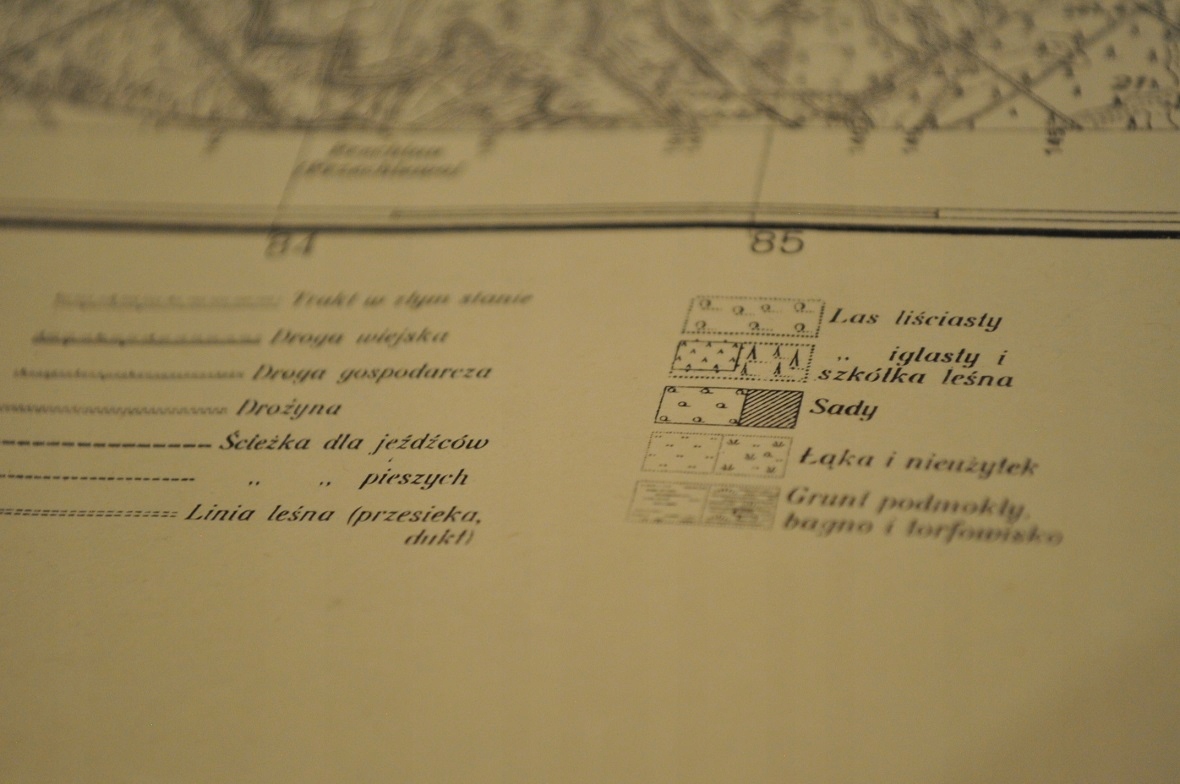 84
85
Trakt w złym stanie
Droga wiejska
Droga gospodarcza
Drożyna
Ścieżka dla jeźdźców
„ „ pieszych
Linia leśna (przesieka,
dukt)
Las liściasty
„ iglasty i
szkółka leśna
Sady
Łąka i nieużytek
Grunt podmokły,
bagno i torfowisko